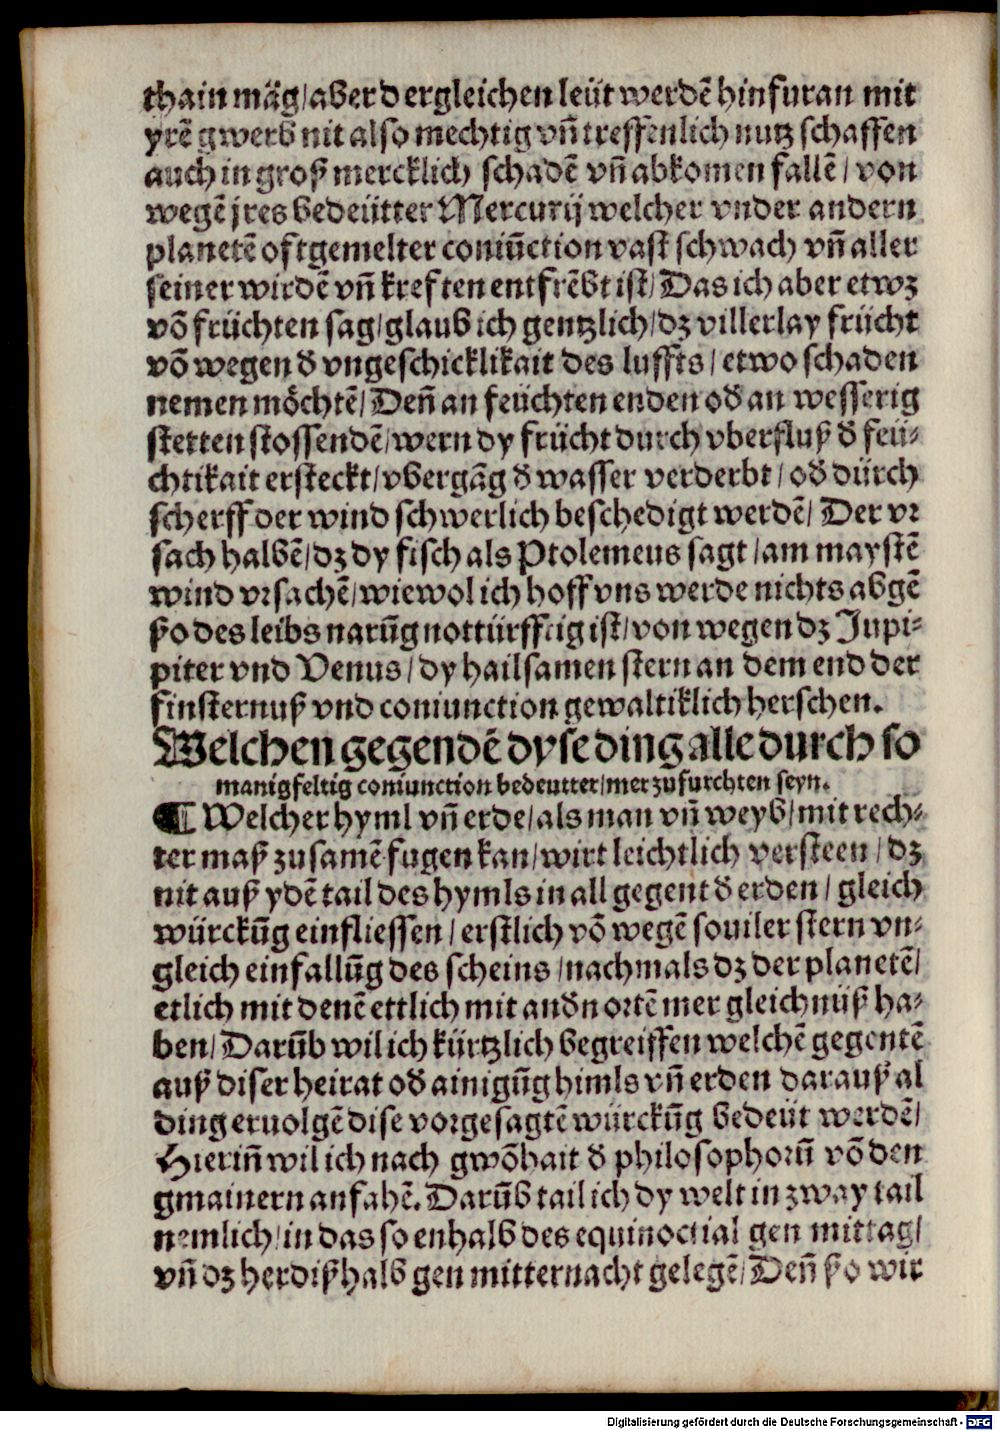 thain mäg/aber dergleichen leüt werdē hinfuran mit
yrē gwerb nit also mechtig vñ treffenlich nutz schaffen
auch in groß mercklich schadē vñ abkomen fallē/ von
wegē jres bedeütter Mercurij welcher vnder andern
planetē oftgemelter coniūction vast schwach vñ aller
seiner wirdē vñ kreften entfrēbt ist/ Das ich aber etwz
vō früchten sag/glaub ich gentzlich/dz villerlay frücht
vō wegen đ vngeschicklikait des luffts/etwo schaden
nemen möchtē/Deñ an feüchten enden ođ an wesserig
stetten stossendē/wern dy frücht durch vberfluß đ feü⸗
chtikait ersteckt/vbergāg đ wasser verderbt/ođ dürch
scherff der wind schwerlich beschedigt werdē/ Der vr
sach halbē/dz dy fisch als Ptolemeus sagt/am maystē
wind vrsachē/wiewol ich hoff vns werde nichts abgē
ßo des leibs narūg nottürfftig ist/von wegen dz Jupi⸗
piter vnd Venus/dy hailsamen stern an dem end der
finsternuß vnd coniunction gewaltiklich herschen.
Welchen gegendē dyse ding alle durch so
manigfeltig coniunction bedeutter/mer zu furchten seyn.
¶ Welcher hyml vñ erde/als man vñ weyb/mit rech⸗
ter maß zusamē fugen kan/wirt leichtlich versteen/dz
nit auß ydē tail des hymls in all gegent đ erden/ gleich
würckūg einfliessen/erstlich vō wegē souiler stern vn⸗
gleich einfallūg des scheins/nachmals dz der planetē/
etlich mit denē ettlich mit anđn ortē mer gleichnüß ha⸗
ben/Darūb wil ich kürtzlich begreiffen welchē gegentē
auß diser heirat ođ ainigūg himls vñ erden darauß al
ding eruolgē dise vorgesagtē würckūg bedeüt werdē/
Hieriñ wil ich nach gwōhait đ philosophorū vō den
gmainern anfahē. Darūb tail ich dy welt in zway tail
nemlich/in das so enhalb des equinoctial gen mittag/
vñ dz herdißhalb gen mitternacht gelegē/Deñ ßo wir
Digitalisierung gefördert durch die Deutsche Forschungsgemeinschaft - DFG